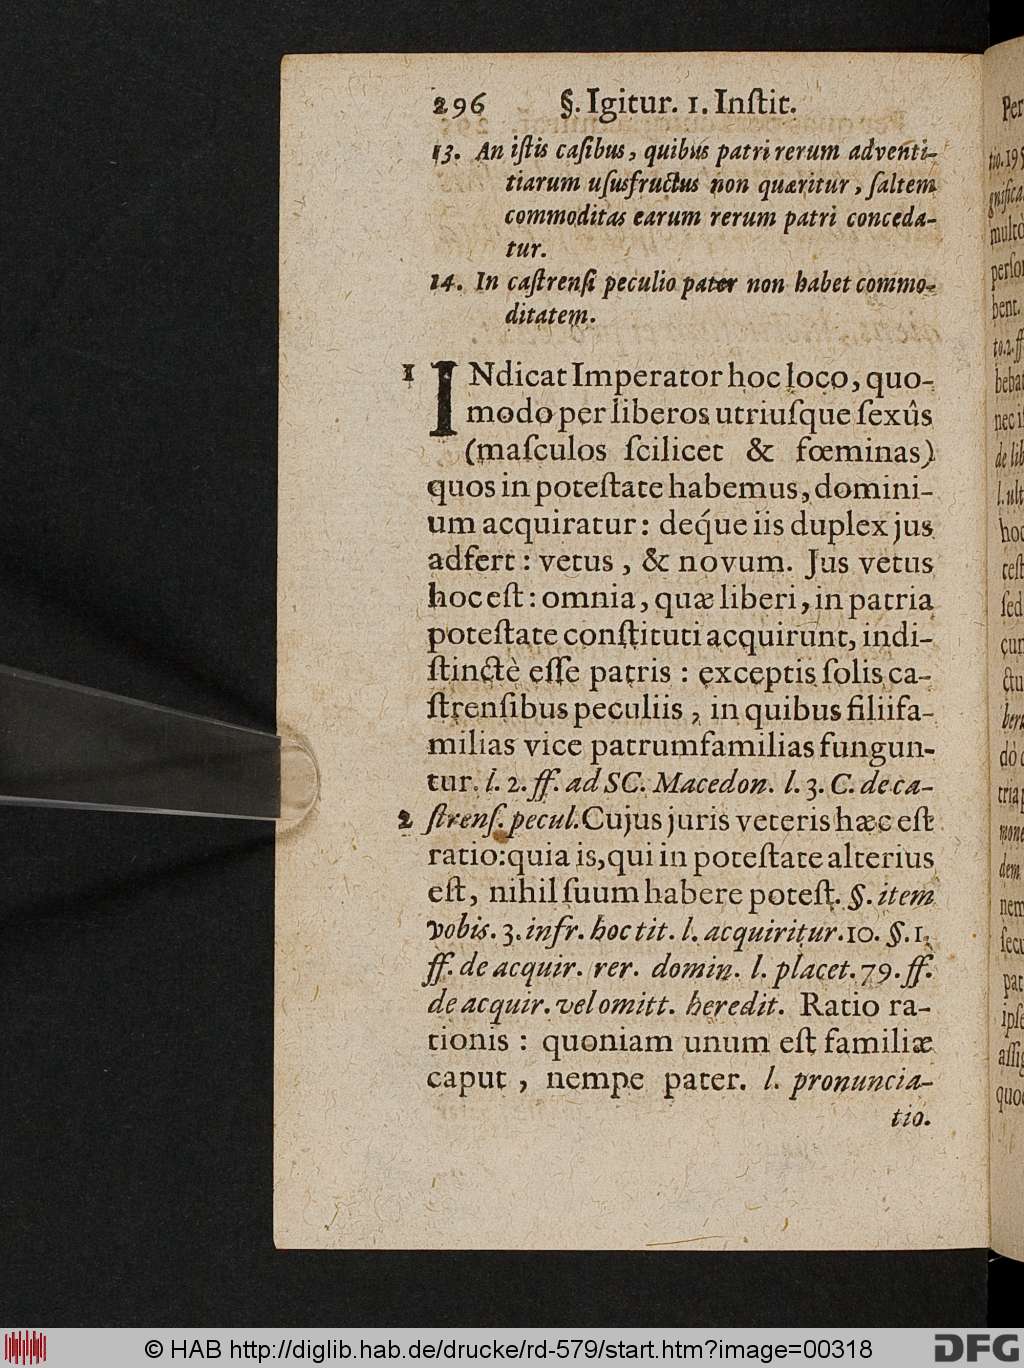 296 §. Igitur. 1. Inſtit.
13. An iſtis caſibus, quibus patri rerum adventi-
tiarum uſusfructus non quæritur, ſaltem
commoditas earum rerum patri conceda-
tur.
14. In caſtrenſi peculio pater non habet commo-
ditatem.
1 INdicat Imperator hoc loco, quo-
modo per liberos utriuſque ſexûs
(maſculos ſcilicet & fœminas)
quos in poteſtate habemus, domini-
um acquiratur: deq́ue iis duplex jus
adfert: vetus, & novum. Jus vetus
hoc eſt: omnia, quæ liberi, in patria
poteſtate conſtituti acquirunt, indi-
ſtinctè eſſe patris: exceptis ſolis ca-
ſtrenſibus peculiis, in quibus filiifa-
milias vice patrumfamilias fungun-
tur. l. 2. ff. ad SC. Macedon. l. 3. C. de ca-
2 ſtrenſ. pecul. Cujus juris veteris hæc eſt
ratio: quia is, qui in poteſtate alterius
eſt, nihil ſuum habere poteſt. §. item
vobis. 3. infr. hoc tit. l. acquiritur. 10. §. 1.
ff. de acquir. rer. domin. l. placet. 79. ff.
de acquir. vel omitt. heredit. Ratio ra-
tionis: quoniam unum eſt familiæ
caput, nempe pater. l. pronuncia-
tio.
Per
tio. 195
gnifica
multo
perſo
bent.
to. 2. ff
bebat
nec i
de lib
l. ult
hoc
teſt
ſed
cun
ctu
bert
do
tria
mone
dem
nem
ſecu
pat
ipſe
aſſig
quod
© HAB http://diglib.hab.de/drucke/rd-579/start.htm?image=00318
DFG